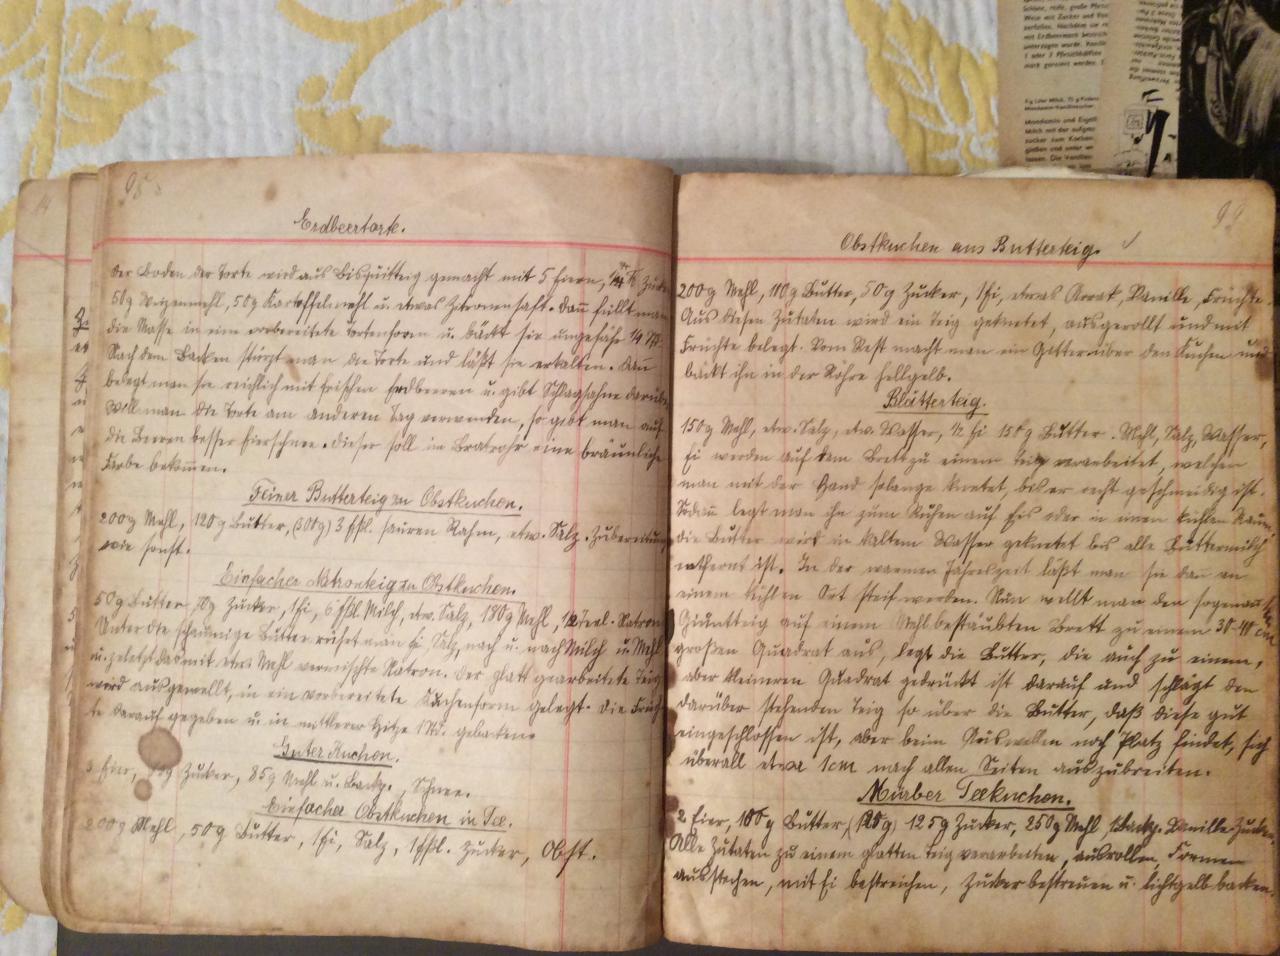 98
Erdbeertorte.
Der Boden der Torte wird aus Bisquitteig gemacht mit 5 Eiern, Zucker
50g Weizenmehl, 50g Kartoffelmehl u. etwas Zitronensaft. Dann füllt man
die Masse in eine vorbereitete Tortenform u. bäckt sie ungefähr ¾ Std.
Nach dem Backen stürzt man die Torte und läßt sie erkalten. Dann
belegt man sie reichlich mit frischen Erdbeeren u. gibt Schlagsahne darüber.
Will man die Torte am anderen Tag verwenden, so gibt man auf
die Beeren besser Eierschnee. Dieser soll im Bratrohr eine bräunliche
Farbe bekommen.
Feiner Butterteig zu Obstkuchen.
200g Mehl, 120g Butter, (300g) 3 Eßl. sauren Rahm, etw. Salz. Zubereitung
wie sonst.
Einfacher Natronteig zu Obstkuchen.
50g Butter, Zucker, 1 Ei, 6 Eßl. Milch, etw. Salz, 180g Mehl, ½ Teel. Natron
Unter die schaumige Butter rührt man Ei, Salz, nach u. nach Milch u. Mehl
u. zuletzt das mit etw. Mehl vermischte Natron. Der glatt gearbeitete Teig
wird ausgewellt, in ein vorbereitete Kuchenform gelegt. Die Früch-
te darauf gegeben u. in mittlerer Hitze 1 Std. gebacken.
Guter Kuchen.
3 Eier, Zucker, 85g Mehl u. Backp., Schnee.
Einfacher Obstkuchen in Tee.
200g Mehl, 50g Butter, 1 Ei, Salz, 1 Eßl. Zucker, Obst.
99
Obstkuchen aus Butterteig.
200g Mehl, 110g Butter, 50g Zucker, 1 Ei, etwas Arrak, Vanille, Früchte.
Aus diesen Zutaten wird ein Teig geknetet, ausgerollt und mit
Früchte belegt. Vom Rest macht man ein Gitter über den Kuchen und
bäckt ihn in der Röhre hellgelb.
Blätterteig.
150g Mehl, etw. Salz, etw. Wasser, ½ Ei 150g Butter. Mehl, Salz, Wasser,
Ei werden auf dem Brett zu einem Teig verarbeitet, welchen
man mit der Hand solange knetet, bis er recht geschmeidig ist.
Sodann legt man ihn zum Ruhen auf Eis oder in einen kühlen Raum,
die Butter wird in kaltem Wasser geknetet bis alle Buttermilch
entfernt ist. In der warmen Jahreszeit läßt man sie dann an
einem kühlen Ort steif werden. Nun wellt man den sogenannten
Grundteig auf einem Mehlbestäubten Brett zu einem 30-40 cm
großen Quadrat aus, legt die Butter, die auch zu einem,
aber kleineren Quadrat gedrückt ist darauf und schlägt den
darüber stehenden Teig so über die Butter, daß diese gut
eingeschlossen ist, aber beim Auswellen noch Platz findet, sich
überall etwa 1cm nach allen Seiten auszubreiten.
Mürber Teekuchen.
2 Eier, 100g Butter, 125g Zucker, 250g Mehl 1 Backp. Vanille Zucker.
Alle Zutaten zu einem glatten Teig verarbeiten, ausrollen, Formen
ausstechen, mit Ei bestreichen, Zucker bestreuen u. lichtgelb backen.